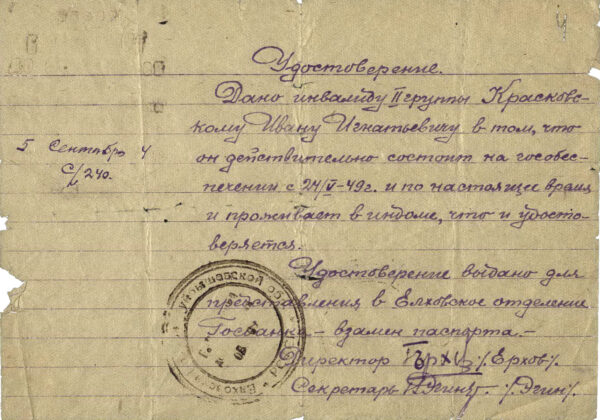 Удостоверение.
Дано инвалиду II группы Красковс-
кому Ивану Игнатьевичу в том, что
он действительно состоит на гособес-
печении с 24/V-49г. и по настоящее время
и проживает в индоме, что и удосто-
веряется.
Удостоверение выдано для
представления в Елховское отделение
Госбанка - взамен паспорта.-
Директор /Ерхов/.
Секретарь /Эгин/.
5 Сентября 4
С/240.